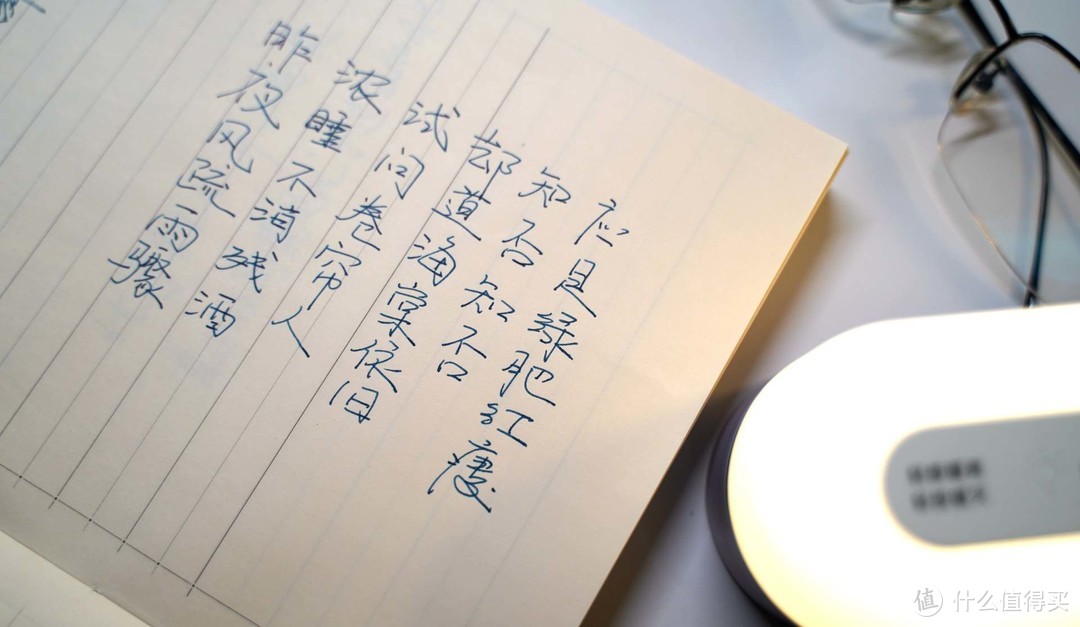 昨夜风疏雨骤
浓睡不消残酒
试问卷帘人
却道海棠依旧
知否知否
应是绿肥红瘦
值 什么值得买